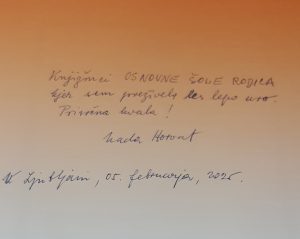 Knjižnici OSNOVNE ŠOLE RODICA
kjer sem preživela lepo uro.
Prisrčna hvala!
Nada Horvat
V Ljubljani, 05. februarja, 2025.